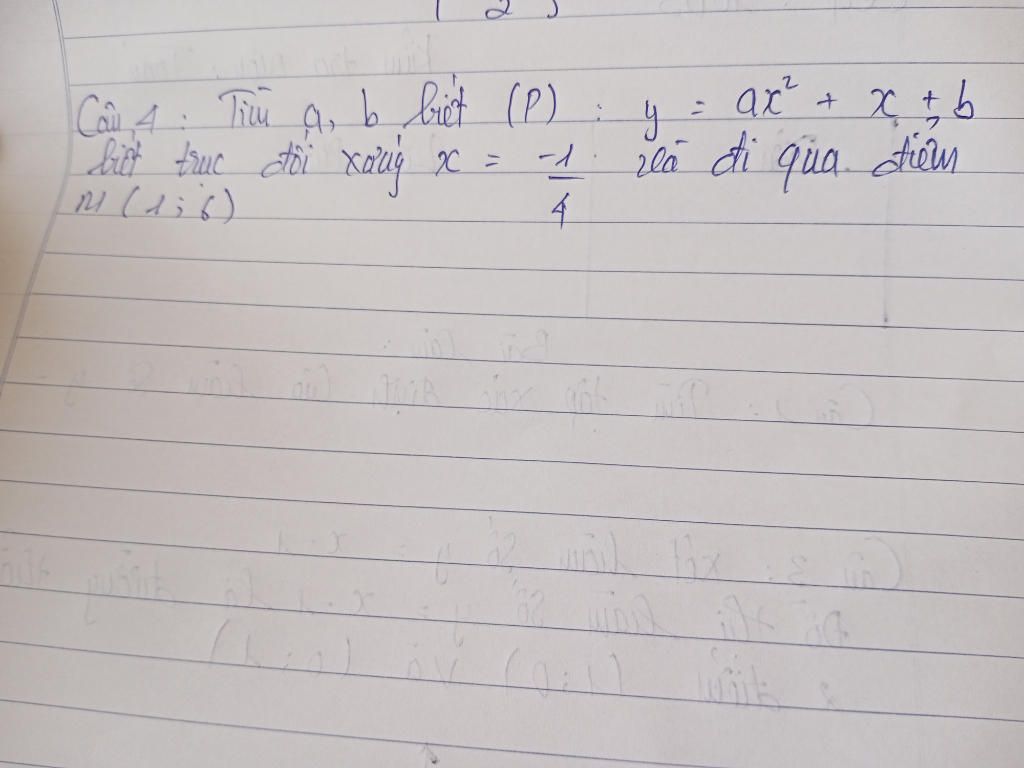 ( 2 )
Câu 4 : Tìm a, b biết (P) : y = ax² + x + b
biết trục đối xứng x = -1/4 và đi qua điểm
M (1 ; 6)